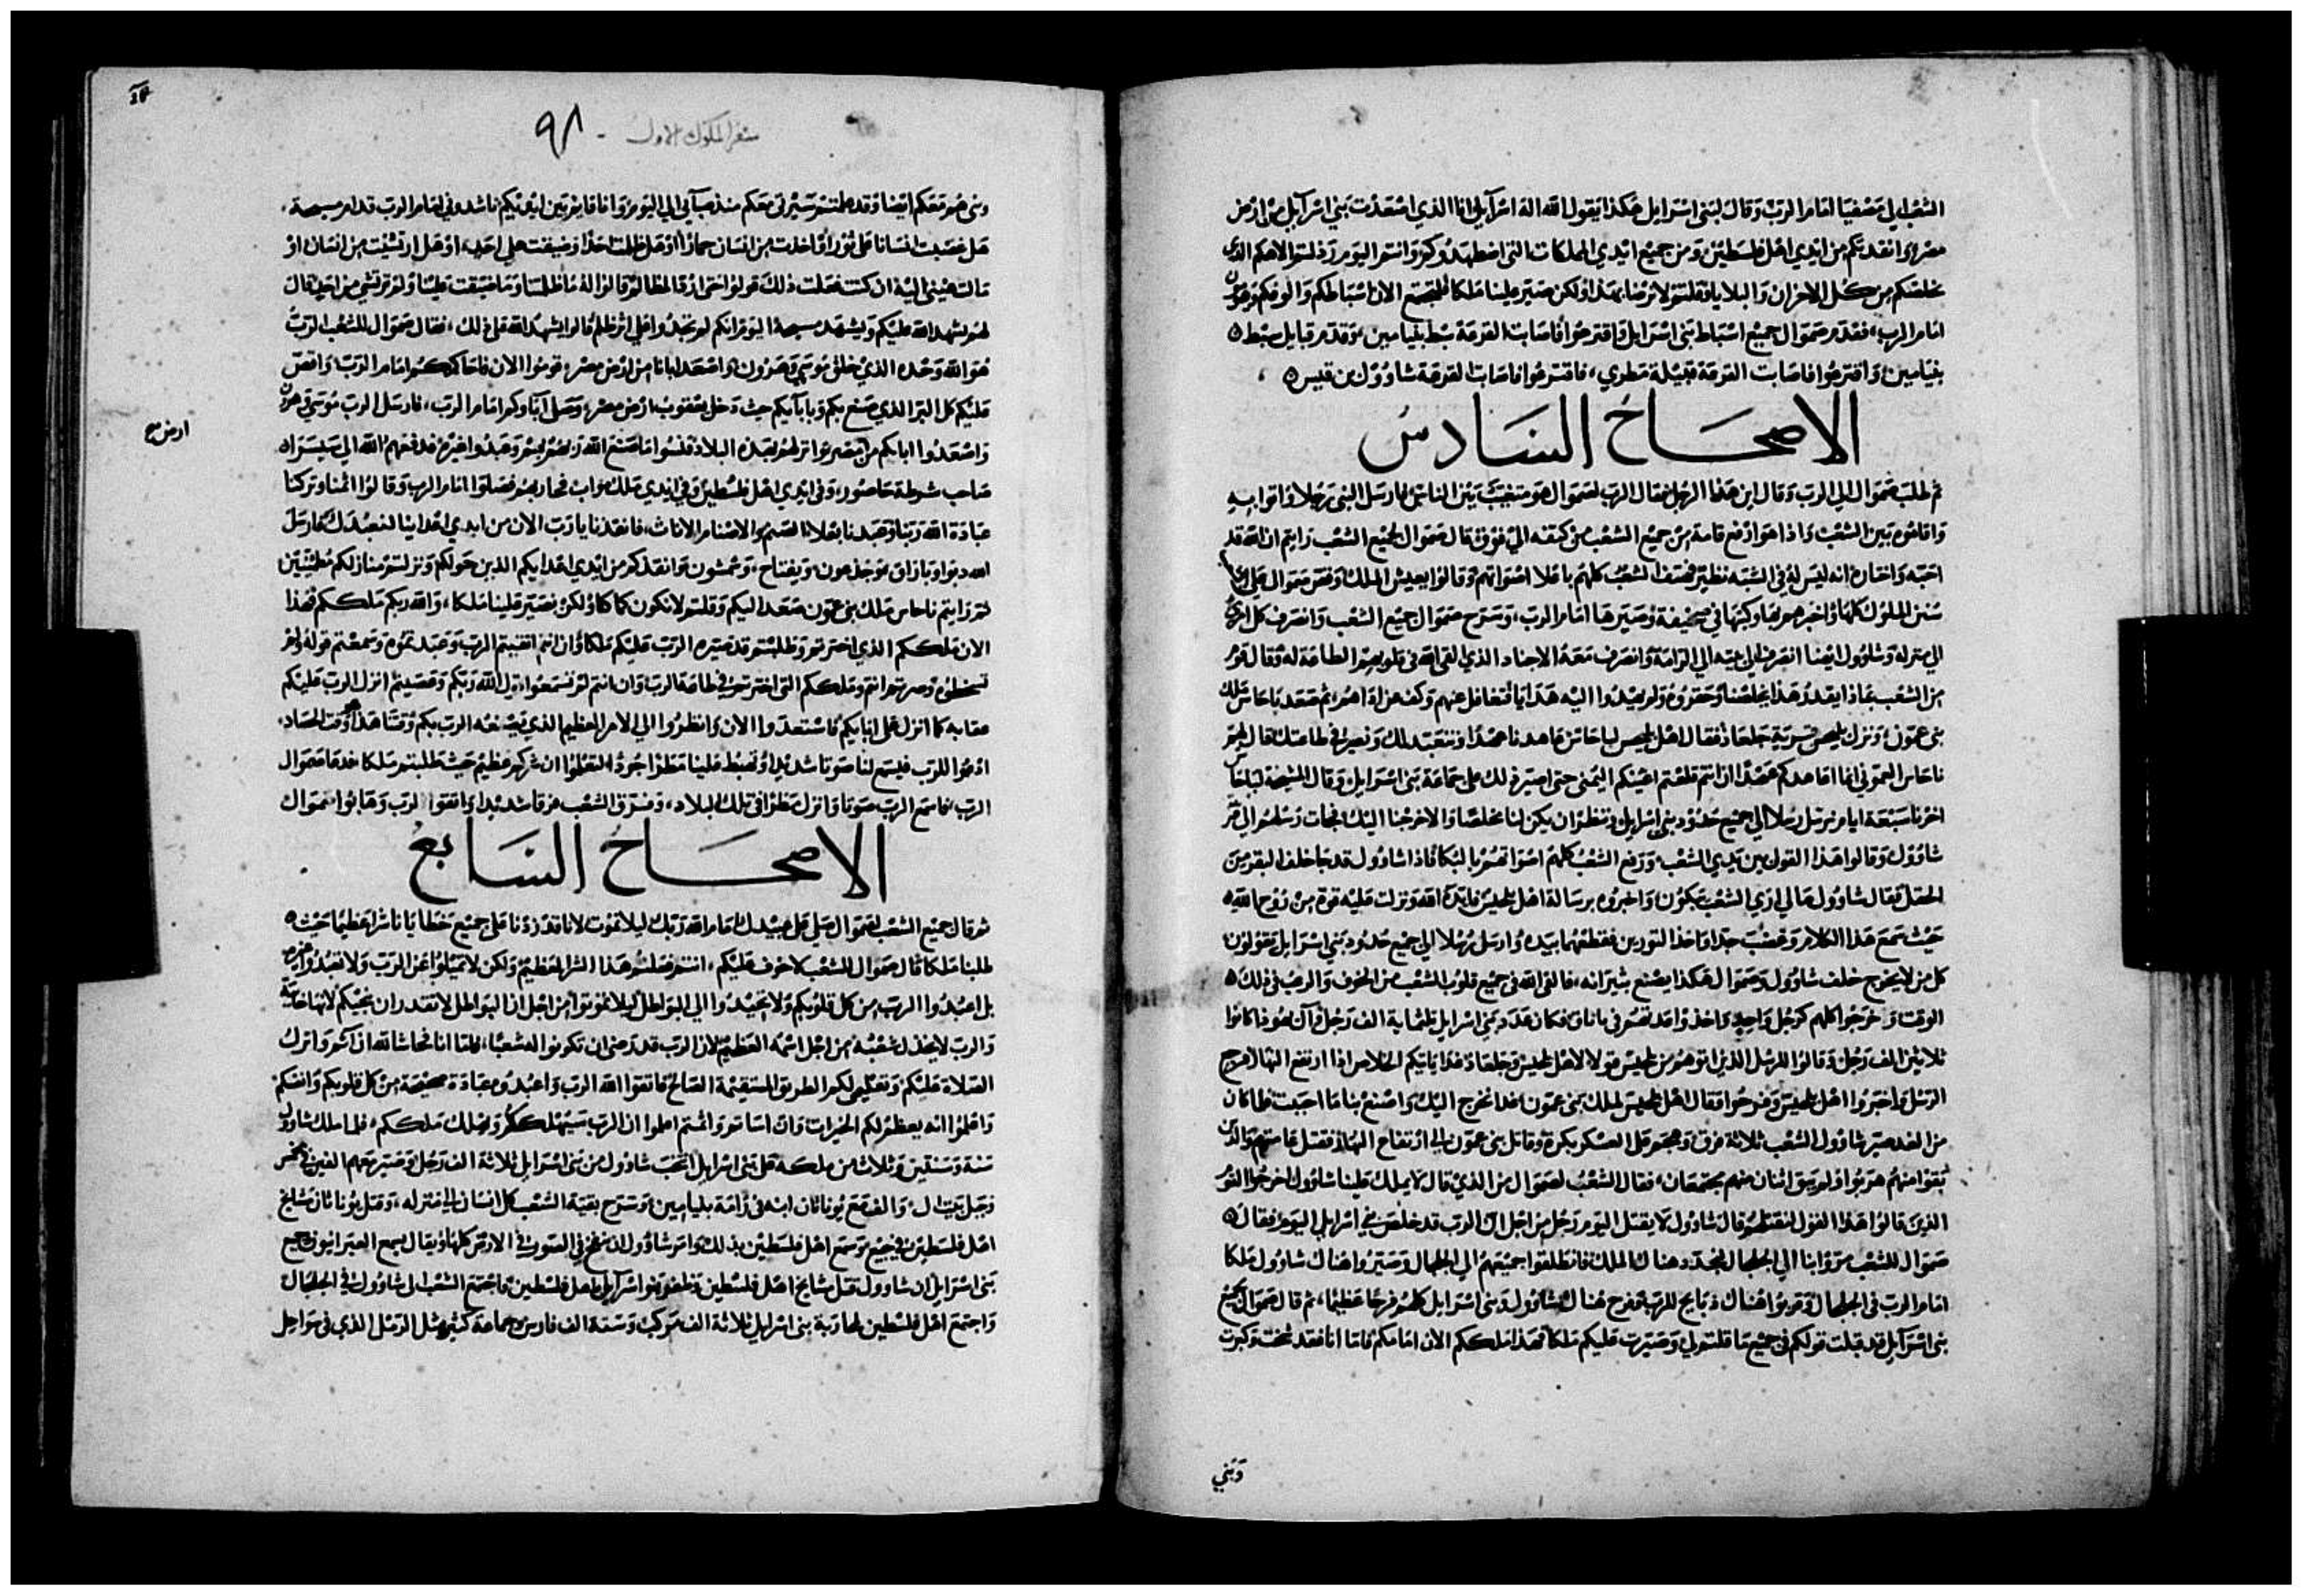 الشعب الي مصفيا امام الرب وقال لبني اسرايل هكذا يقول الله اله اسرآيل انا الذي اصعدت بني اسرآيل من ارض
مصر وانقذتكم من ايدي اهل فلسطين ومن جميع ايدي المملكات التي اضطهدوكم وانتم اليوم رذلتم الاهكم الذي
خلصكم من كل الاحزان والبلايا وقلتم لا نرضا بهذا ولكن صير علينا ملكا فلتجتمع الان اسباطكم والوفكم
امام الرب، فقدم صموال جميع اسباط بني اسرايل واقترعوا فاصابت القرعة سبط بنيامين، وقدم قبايل سبط
بنيامين، واقترعوا فاصابت القرعة قبيلة مطري، فاقترعوا فاصابت القرعة شاوول بن قيس
الاصحاح السادس
ثم طلب صموال الي الرب وقال اين هذا الرجل فقال الرب لصموال هو متغيب بين فارسل النبي رجلا واتوا به
واقاموه بين الشعب واذا هو ارفع قامة من جميع الشعب من كتفه الي فوق قال صموال لجميع الشعب رايتم ان الله قد
احبه واختاره انه ليس له في الشبه نظير فهتف الشعب كلهم باعلا اصواتهم وقالوا يعيش الملك وقص صموال علي
سنن الملوك كلها واخبرهم بها وكتبها في صحيفة وصيرها امام الرب، وسرح صموال جميع الشعب وانصرف كل
الي منزله وشاوول ايضا انصرف الي بيته الي الرامة وانصرف معه الاجناد الذي القي الله في قلوبهم الطاعة له وقال قوم
من الشعب بماذا يقدر هذا يخلصنا وحقروه ولم يهدوا اليه هدايا فتغافل عنهم ثم صعد ناحاس ملك
بني عمون ونزل قرية جلعاد فقال اهل لناحاس عاهدنا عهدا ونتعبد لك ونصير في طاعتك قال لهم
ناحاس العموني انما اعاهدكم عهدا اذا انتم قلعتم اعينكم اليمني حتي اصير ذلك علي جماعة بني اسرايل وقال المشيخة لناحاس
اخرنا سبعة ايام نرسل رسلا الي جميع حدود بني اسرايل وننتظر ان يكن لنا مخلصا والا خرجنا اليك فجات رسلهم الي
شاوول وقالوا هذا القول بين يدي الشعب ورفع الشعب كلهم اصواتهم بالبكا فاذا شاوول قد جا خلف البقر من
الحقل فقال شاوول ما لي اري الشعب يبكون واخبروه برسالة اهل ونزلت عليه قوة من روح الله
حيث سمع هذا الكلام وغضب جدا واخذ الثورين فقطعهما بيده وارسل رسلا الي جميع حدود بني اسرايل يقولون
كل من لا يخرج خلف شاوول وصموال هكذا يصنع بثيرانه، فالقي الله في جميع قلوب الشعب من الخوف والرعب في ذلك
الوقت وخرجوا كلهم كرجل واحد فكان عدد بني اسرايل ثلثماية الف رجل وآل يهوذا كانوا
ثلاثين الف رجل وقالوا للرسل الذين اتوهم من قولوا لاهل جلعاد غدا ياتيكم الخلاص اذا ارتفع النهار فرجع
الرسل واخبروا اهل وفرحوا فقال اهل لملك بني عمون غدا نخرج اليك واصنع بنا ما احببت فلما كان
من الغد صير شاوول الشعب ثلاثة فرق وهجم علي العسكر بكرة وقاتل بني عمون الي ارتفاع النهار فقتل عامتهم والذي
بقوا منهم هربوا ولم يبق اثنان منهم مجتمعان، فقال الشعب لصموال من الذي قال لا يملك علينا شاوول اخرجوا القوم
الذين قالوا هذا القول لنقتلهم وقال شاوول لا يقتل اليوم رجل من اجل ان الرب قد خلص في اسرايل اليوم فقال
صموال للشعب مروا بنا الي الجلجال نجدد هناك الملك فانطلقوا جميعهم الي الجلجال وصيروا هناك شاوول ملكا
امام الرب في الجلجال وقربوا هناك ذبايح للرب وفرح هناك شاوول وبني اسرايل كلهم فرحا عظيما، ثم قال صموال لجميع
بني اسرآيل قد قبلت قولكم في جميع ما قلتم لي وصيرت عليكم ملكا فهذا ملككم الان امامكم فاما انا فقد شخت وكبرت
وبني
سفر الملوك الاول - ٩٨
وبني هم معكم ايضا وقد علمتم سيرتي معكم منذ صبآي الي اليوم وانا قايم بين ايديكم ناشدوني امام الرب قدام مسيحه،
هل غصبت انسانا علي ثوره او اخذت من انسان حمارا او هل ظلمت احدا او ضيقت علي احد، او هل ارتشيت من انسان او
مالت عيني اليه ان كنت فعلت ذلك قولوا قالوا له ما ظلمتنا وما ضيقت علينا ولم ترتشي من احد، قال
لهم يشهد الله عليكم ويشهد مسيحه اليوم انكم لم تجدوا علي اثر ظلم قالوا يشهد الله علي ذلك، فقال صموال للشعب الرب
هو الله وحده الذي خلق موسي وهرون واصعد ابانا من ارض مصر، قوموا الان فاحاككم امام الرب واقص
عليكم كل البر الذي صنع بكم وبابآيكم حيث دخل يعقوب ارض مصر، وصلي آباوكم امام الرب، فارسل الرب موسي وهرون
واصعدوا اباكم من مصر وانزلهم بهذه البلاد فنسوا ما صنع الله ربهم بهم وعبدوا غيره فدفعهم الله الي سيسرا
ارض صح
صاحب شرطة حاصور، وفي ايدي اهل فلسطين وفي ايدي ملك مواب فحاربهم فصلوا امام الرب وقالوا اثمنا وتركنا
عبادة الله ربنا وعبدنا بعلا الصنم والاصنام الاناث، فانقذنا يا رب الان من ايدي اعداينا لنعبدك فارسل
الله دبورا وباراق ويفتاح، وشمشون وانقذكم من ايدي اعدايكم الذين حولكم ونزلتم منازلكم مطمئنين
ثم رايتم ناحاس ملك بني عمون صعد اليكم وقلتم لا نكون كما كنا ولكن نصير علينا ملكا، والله ربكم ملككم فهذا
الان ملككم الذي اخترتم وطلبتم قد صيره الرب عليكم ملكا وان انتم اتقيتم الرب وعبدتموه وسمعتم قوله ولم
تسخطوه وصرتم انتم وملككم التي اخترتموه في طاعة الرب وان انتم لم تسمعوا قول الله ربكم وعصيتم انزل الرب عليكم
عقابه كما انزل علي ابايكم فاستعدوا الان وانظروا الي الامر العظيم الذي يصنعه الرب بكم وقتنا هذا هو وقت الحصاد،
ادعوا للرب فيسمع لنا صوتا شديدا ويهبط علينا مطرا جودا لتعلموا ان شركم عظيم حيث طلبتم ملكا فدعا صموال
الرب فاسمع الرب صوتا وانزل مطرا في تلك البلاد، وفرق الشعب فرقا شديدا واتقوا الرب وهابوا صموال
الاصحاح السابع
ثم قال جميع الشعب لصموال صلي علي عبيدك امام الله ربك ليلا نموت لانا قد زدنا علي جميع خطايانا شرا عظيما حيث
طلبنا ملكا قال صموال للشعب لا خوف عليكم، انتم فعلتم هذا الشر العظيم ولكن لا تميلوا عن الرب ولا تعبدوا غيره
بل اعبدوا الرب من كل قلوبكم ولا تحيدوا الي البواطل ليلا تموتوا من اجل ان البواطل لا تقدر ان تنجيكم لانها خايبة
والرب لا يخذل شعبه من اجل اسمه العظيم لان الرب قد رضي ان تكونوا له شعبا، فاما انا فحاشا لله ان آثم واترك
الصلاة عليكم وتعليمي لكم الطريق المستقيمة الصالح فاتقوا الله الرب واعبدوه عبادة صحيحة من كل قلوبكم وانفسكم
واعلموا انه يعظم لكم الخيرات وان اساتم واثمتم اعلموا ان الرب سيهلككم ويهلك ملككم، فلما ملك شاوول
سنة وسنتين وثلاث من ملكه علي بني اسرايل انتخب شاوول من بني اسرايل ثلاثة الف رجل وصير معهم الفين في
وجبل بيت ال، والف مع يوناثان ابنه في رامة بنيامين، وسرح بقية الشعب كل انسان الي منزله، وقتل يوناثان مشايخ
اهل فلسطين في جبع وسمع اهل فلسطين بذلك وامر شاوول ان ينفخ في الصور في الارض كلها وقال يسمع العبرانيون جميع
بني اسرايل ان شاوول قتل مشايخ اهل فلسطين وظفر بنو اسرآيل باهل فلسطين فاجتمع الشعب الي شاوول في الجلجال
واجتمع اهل فلسطين لمحاربة بني اسرايل ثلاثة الف مركب وستة الف فارس وجماعة كثير مثل الرمل الذي في سواحل